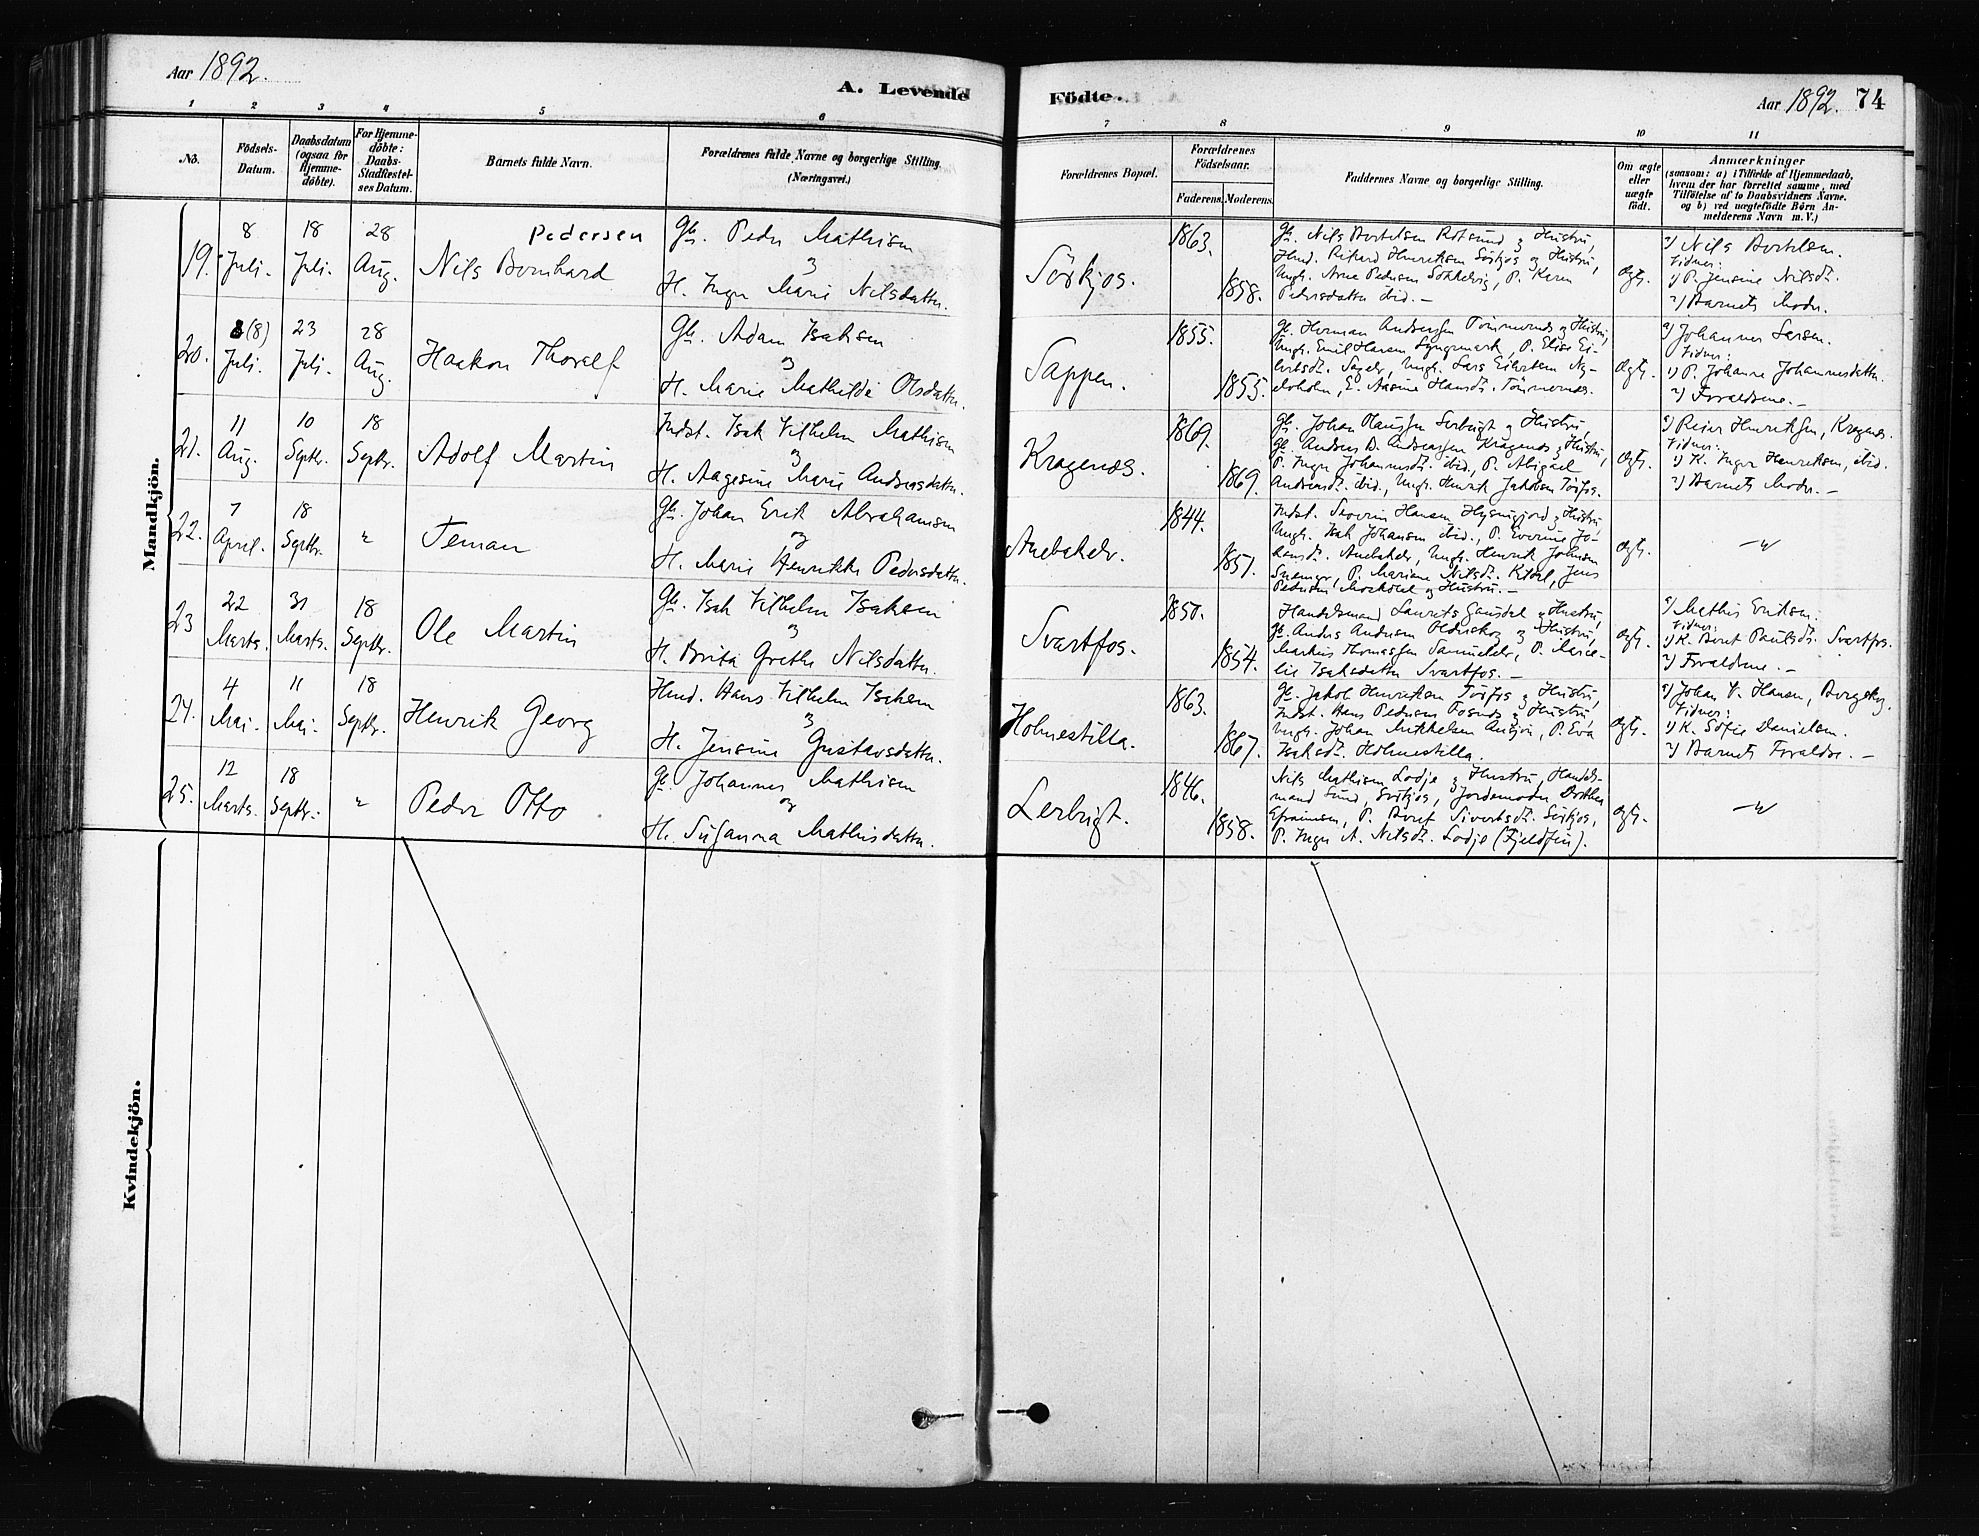 Aar 1892.
A. Levende
Födte.
Aar 1892. 74
1 2 3 4 5 6 7 8 9 10 11
No.
Födsels-Datum.
Daabsdatum (ogsaa for Hjemme-döbte).
For Hjemme-döbte: Daabs-Stadfæstel-ses Datum.
Barnets fulde Navn.
Forældrenes fulde Navne og borgerlige Stilling.
(Næringsvei.)
Forældrenes Bopæl.
Forældrenes Födselsaar.
Faderens. Moderens.
Faddernes Navne og borgerlige Stilling.
Om ægte eller uægte födt.
Anmærkninger
(saasom: a) i Tilfælde af Hjemmedaab,
hvem der har forrettet samme, med
Tilföielse af to Daabsvidners Navne.
og b) ved uægtefödte Börn An-
melderens Navn m. V.)
Mandkjön.
19. 8 Juli. 18 Juli. 28 Aug. Nils Bernhard Pedersen
Gb. Peder Mathisen
og
H. Inger Marie Nilsdatter.
Sörkjos. 1863. 1858.
Gb. Nils Bertelsen Rotsund og Hustru,
Hmd. Rikard Henriksen Sörkjos og Hustru,
Ungk. Arne Pedersen Sokkelvig, P. Karen
Pedersdatter ibid. —
Ægte.
a) Nils Bertelsen.
Vidner:
1) P. Jensine Nilsdt.
2) Barnets Moder.
20. 8 (8) Juli. 23 Juli. 28 Aug. Haakon Thoralf
Gb. Adam Isaksen
og
H. Marie Mathilde Olsdatter.
Sappen. 1855. 1855.
Gb. Herman Andersen Tömmernes og Hustru,
Ungk. Emil Hansen Lyngmark, P. Elise Ei-
lertsdt. Sagelv, Ungk. Lars Eilertsen Ny-
elvholm, E. Aasine Hansdt. Tömmernes.
Ægte.
a) Johannes Larsen.
Vidner:
1) P. Johanne Johannesdatter.
2) Forældrene. —
21. 11 Aug. 10 Septbr. 18 Septbr. Adolf Martin
Indst. Isak Vilhelm Mathisen
og
H. Aagesine Marie Andersdatter.
Kragenæs. 1869. 1869.
Gb. Johan Claussen Lerbugt og Hustru,
Gb. Anders D. Andersen Kragenæs og Hustru,
P. Inger Johannesdt. ibid., P. Abigael
Andersdt. ibid., Ungk. Henrik Jakobsen Tösfos.
Ægte.
a) Peier Henriksen, Kragenæs.
Vidner:
1) K. Inger Henriksen, ibid.
2) Barnets Moder. —
22. 7 April. 18 Septbr. " Teman
Gb. Johan Erik Abrahamsen
og
H. Marie Henrikke Pedersdatter.
Anebakelv. 1844. 1851.
Indst. Severin Hansen Hysingjord og Hustru,
Ungk. Isak Johansen ibid., P. Everine Jo-
hansdt. Anebakelv, Ungk. Henrik Johnsen
P. Mariane Nilsdt. Kildal, Jens
Pedersen og Hustru. —
Ægte. — " —
23 22 Marts. 31 Marts. 18 Septbr. Ole Martin
Gb. Isak Vilhelm Isaksen
og
H. Brita Grethe Nilsdatter.
Svartfos. 1850. 1854.
Handelsmand Laurits Gausdal og Hustru,
Gb. Anders Andersen Olderskog og Hustru,
Markus Thomassen Samuelelv, P. Marce-
lie Isaksdatter Svartfos. —
Ægte.
a) Mathis Eriksen.
Vidner:
1) K. Beret Paulsdt. Svartfos.
2) Forældrene. —
24. 4 Mai. 11 Mai. 18 Septbr. Henrik Georg
Hmd. Hans Vilhelm Isaksen
og
H. Jensine Gustavsdatter.
Holmestilla. 1863. 1867.
Gb. Jakob Henriksen Tösfos og Hustru,
Indst. Hans Pedersen Fosnes og Hustru,
Ungk. Johan Mikkelsen Ansjon, P. Eva
Isaksdt. Holmestilla.
Ægte.
a) Johan V. Hansen, Borgskog.
Vidner:
1) K. Sofie Danielsen.
2) Barnets Forældre. —
25. 12 Marts. 18 Septbr. " Peder Otto
Gb. Johannes Mathisen
og
H. Susanna Mathisdatter.
Lerbugt. 1846. 1858.
Nils Mathisen Lodje og Hustru, Handels-
mand Lund, Sörkjos, Jordemoder Dorthea
Efraimsen, P. Beret Sivertsdt. Sörkjos,
P. Inger A. Nilsdt. Lodje (Fjeldfin).
Ægte. — " —
Kvindekjön.